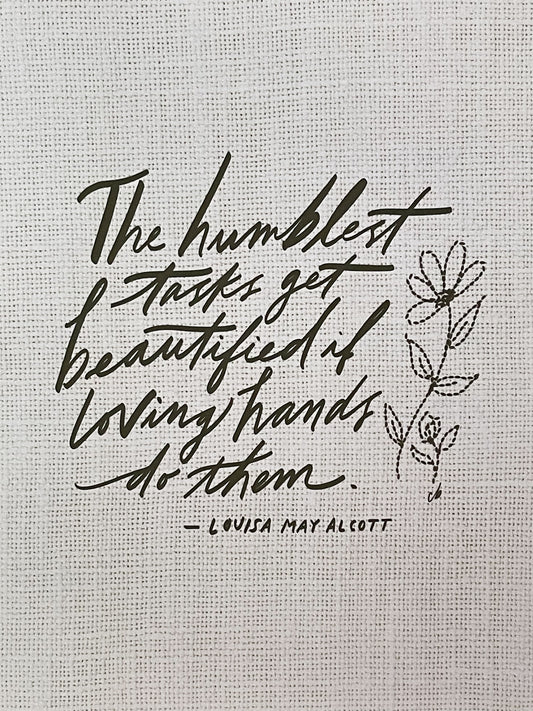 The humblest
tasks get
beautified if
loving hands
do them.
— LOUISA MAY ALCOTT